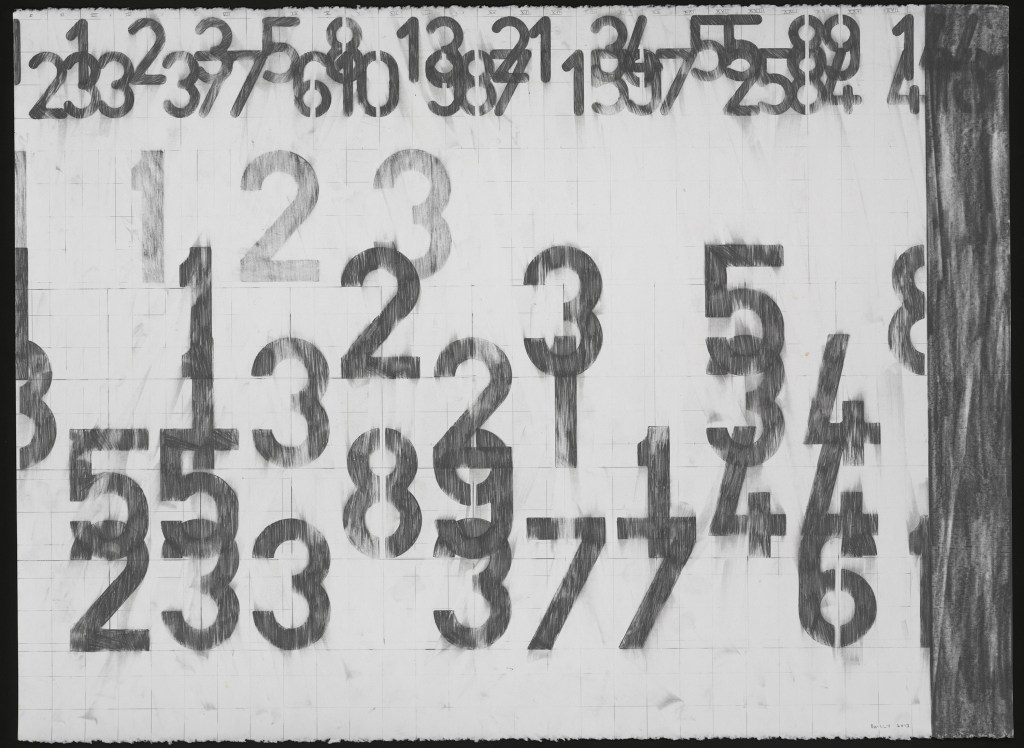 1 1 2 3 5 8 13 21 34 55 89 14
233 377 610 987 1597 2584 4 6
1 1 2 3
1 1 2 3 5 8
8 1 3 2 1 3 4
5 5 8 9 1 4 4
2 3 3 3 7 7 6 1